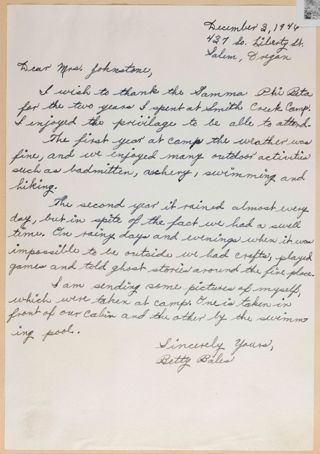 December 3, 1946
437 So. Liberty St.
Salem, Oregon
Dear Mrs. Johnstone,
I wish to thank the Gamma Phi Beta
for the two years I spent at Smith Creek Camp.
I enjoyed the privilage to be able to attend.
The first year at camp the weather was
fine, and we enjoyed many outdoor activities
such as badmitten, archery, swimming and
hiking.
The second year it rained almost every
day, but in spite of the fact we had a swell
time. On rainy days and evenings when it was
impossible to be outside we had crafts, played
games and told ghost stories around the fire place.
I am sending some pictures of myself,
which were taken at camp. One is taken in
front of our cabin and the other by the swimm
ing pool.
Sincerely Yours,
Betty Bales